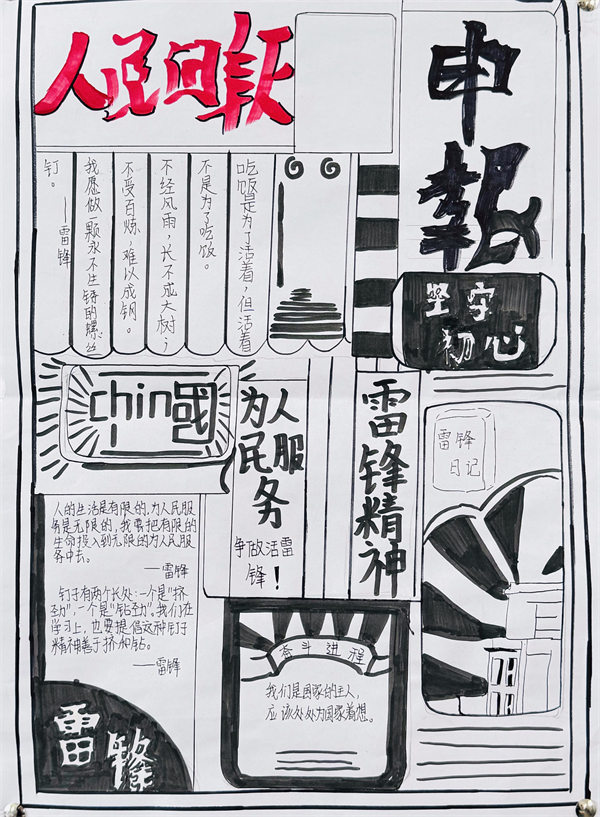 人民日報
申
報
坚守
初心
吃饭是为了活着，但活着
不是为了吃饭。
不经风雨，长不成大树；
不受百炼，难以成钢。
我愿做一颗永不生锈的螺丝
钉。
——雷锋
chin國
为人
民服
务
争做活雷
锋！
雷锋精神
雷锋
日记
人的生活是有限的，为人民服
务是无限的，我要把有限的
生命投入到无限的为人民服
务中去。
——雷锋
钉子有两个长处：一个是“挤
劲”，一个是“钻劲”。我们在
学习上，也要提倡这种钉子
精神善于挤和钻。
——雷锋
雷锋
奋斗进程
我们是国家的主人，
应该处处为国家着想。